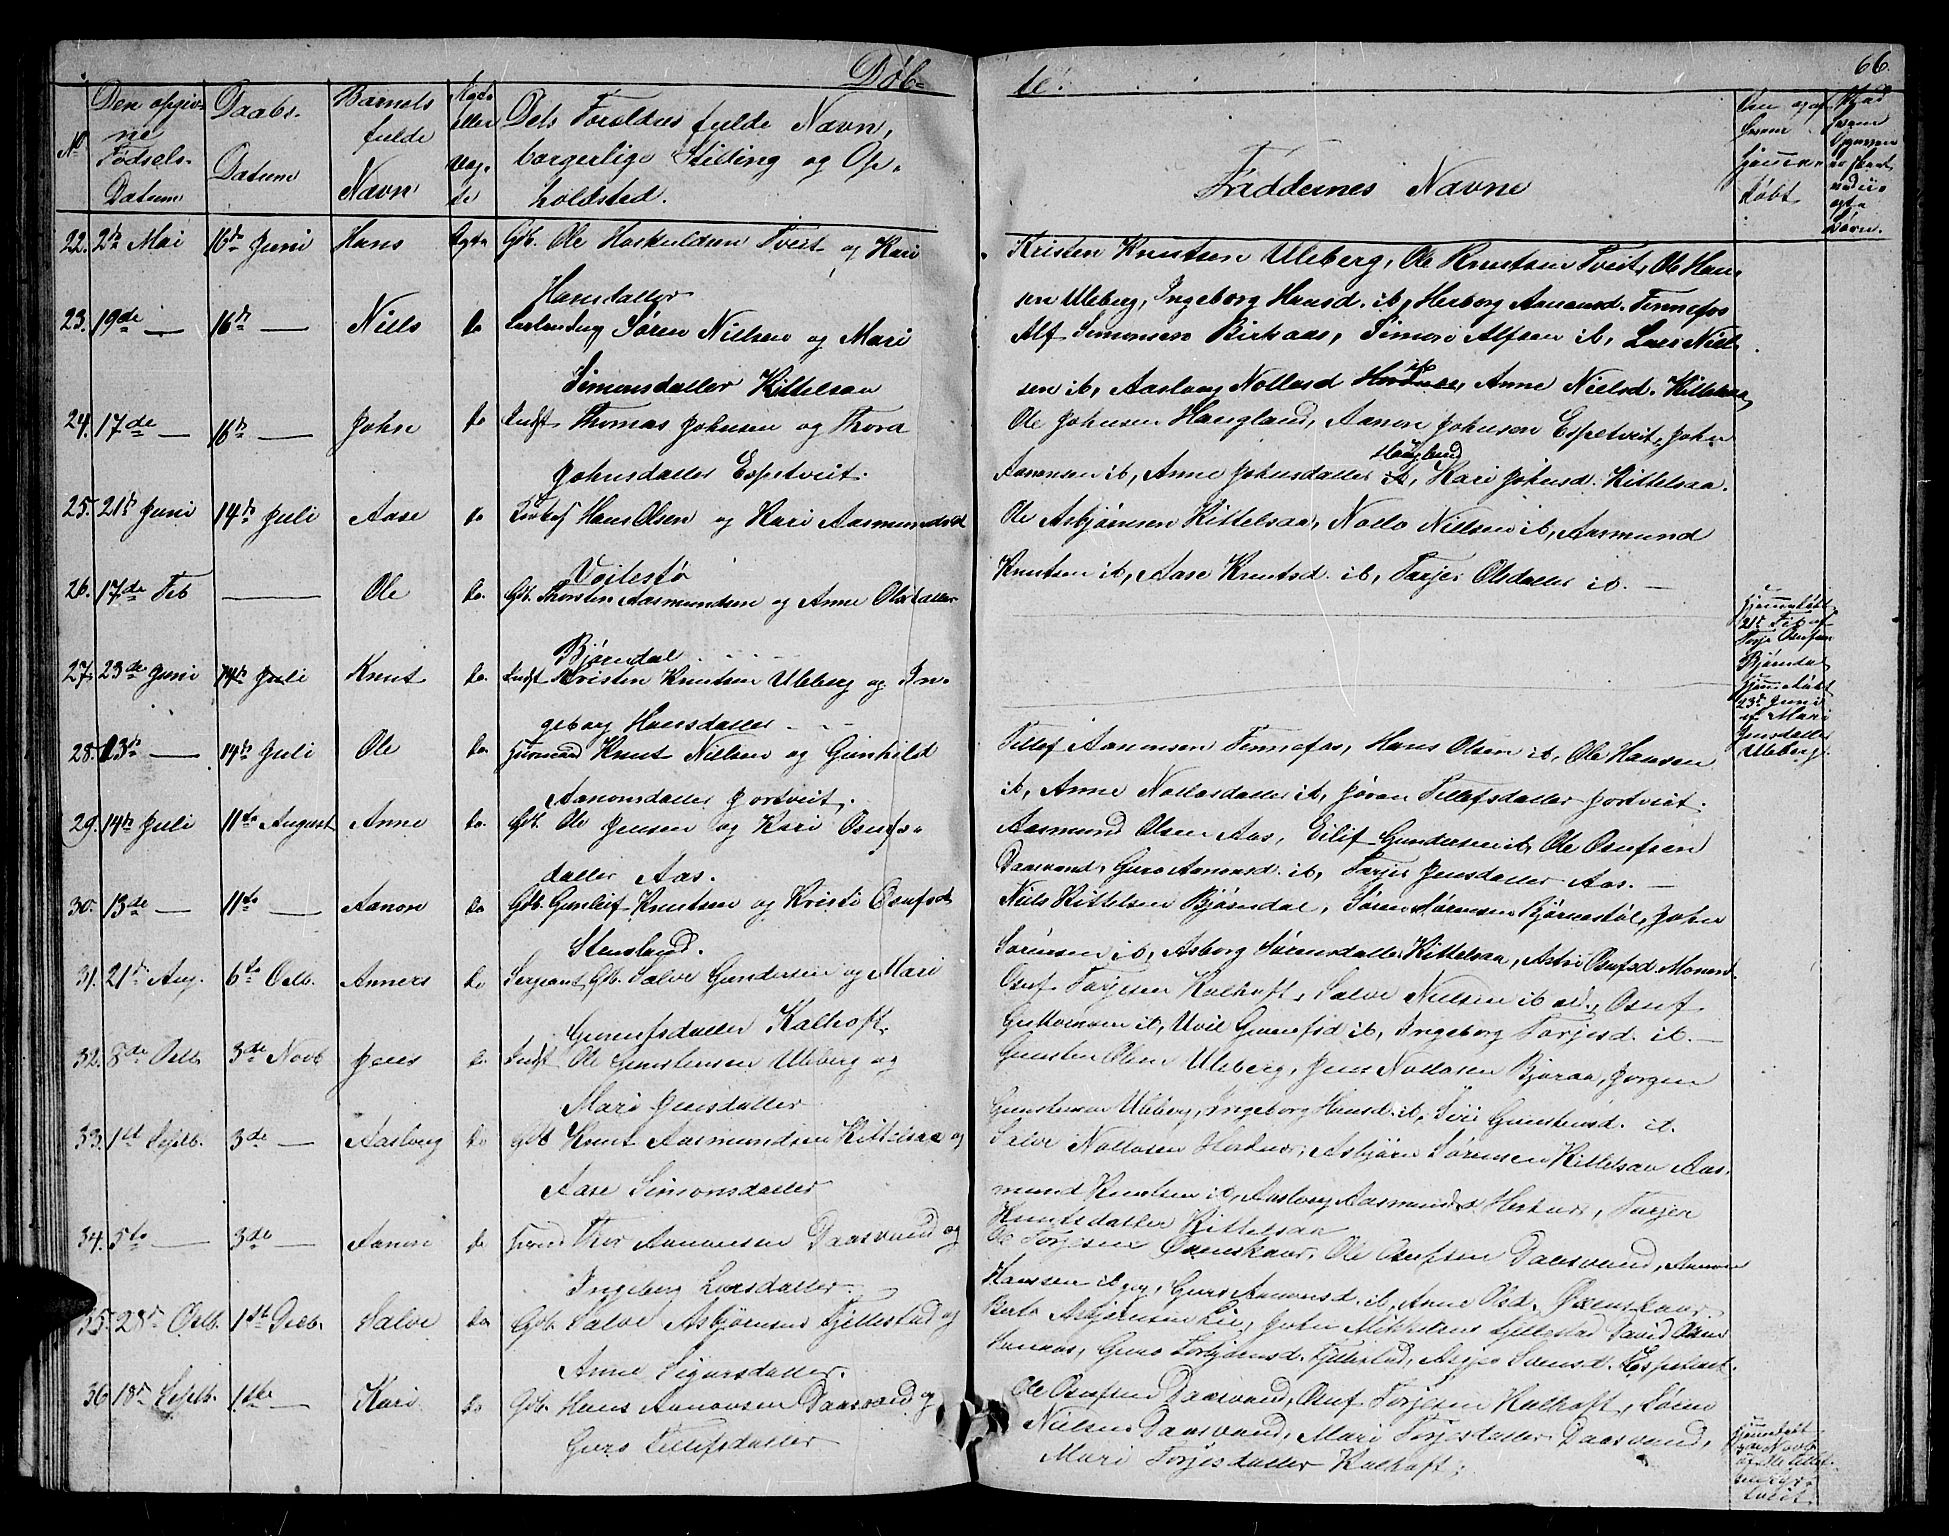 Døb-
te.
66.
No Den opgiv- ne Fødsels- Datum
Daabs- Datum
Barnets fulde Navn
Ægte eller Uæg- te
Dets Foreldres fulde Navn, borgerlige Stilling og Op- holdsted.
Faddernes Navne
22. 2de Mai 16de Juni Hans Ægte Gdb. Ole Haskuldsen Tveit og Kari
Hansdatter
Kristen Knutsen Uleberg, Ole Knutsen Tveit, Ole Han-
sen Uleberg, Ingeborg Hansd. ib, Herborg Aanonsd. Tennefos
23. 19de — 16de — Niels do Søren Nielsen og Mari
Simonsdatter Kittelsaa
Alf Simonsen Birkaas, Simon Alfsen ib, Lars Niel-
sen ib, Aaslaug Nollosd ib, Anne Nielsd. Kittelsaa
24. 17de — 16de — John do Indst Thomas Johnsen og Thora
Johnsdatter Espetveit.
Ole Johnsen Haugland, Aanon Johnsen Espetveit, John
Aanonsen ib, Anne Johnsdatter Haugland, Kari Johnsd. Kittelsaa.
25. 21de Juni 14de Juli Aase do Hans Olsen og Kari Aasmundsd
Voilestø
Ole Asbjørnsen Kittelsaa, Nollo Nielsen ib, Aasmund
Knutsen ib, Aase Knutsd. ib, Tarjer Olsdatter ib. —
26. 17de Feb — Ole do. Gdb. Thorsten Aasmundsen og Anne Olsdatter
Bjørndal
Hjemmedøbt
21de Feb af
Torje Osufsen
Bjørndal
27. 23de Juni 14de Juli Knut do. Indst Kristen Knutsen Uleberg og In-
geborg Hansdatter
Hjemmedøbt
23de Juni
af Mari
Jensdatter
Uleberg.
28. 13de — 14de Juli Ole do. Knut Nielsen og Gunhild
Aanonsdatter Jortveit.
Tellef Aanonsen Tennefos, Hans Olsen ib, Ole Hansen
ib, Anne Nollosdatter ib, Jøran Tellefsdatter Jortveit.
29. 14de Juli 11de August Anne do. Gdb. Ole Jensen og Kari Osufs-
datter Aas.
Aasmund Olsen Aas, Eilif Gundersen ib, Ole Osufsen
Daasvand, Guro Aanonsd. ib, Tarjer Jensdatter Aas. —
30. 13de — 11de — Aanon do Gdb. Gunleif Knutsen og Kristi Osufsd
Stensland.
Niels Kittelsen Bjørndal, Søren Sørensen Bjørnestøl, John
Sørensen ib, Asborg Sørensdatter Kittelsaa, Astri Osufsd
31. 21de Aug. 6te Octb. Anners do Sergeant, Gdb. Salve Gundersen og Mari
Gunnufsdatter Kalhoft.
Osuf Torjesen Kalhoft, Salve Nielsen ib, Osuf
Guttormsen ib, Gunufsd ib, Ingeborg Torjesd. ib. —
32. 8de Octb 3de Novb Jens do Indst Ole Gunstensen Uleberg og
Mari Jensdatter
Gunsten Olsen Uleberg, Jens Nollosen Bjoraa, Jørgen
Gunstensen Uleberg, Ingeborg Hansd. ib, Siri Gunstensd. ib.
33. 1st Septb. 3de — Aasborg do Gdb Knut Aasmundsen Kittelsaa og
Aase Simonsdatter
Salve Nollosen Hordnes, Asbjørn Sørensen Kittelsaa, Aas-
mund Knutsen ib, Aasborg Aasmundsd Hordnes, Tarjer
Knutsdatter Kittelsaa
34. 5te — 3de — Aanon do Thor Aanonsen Daasvand og
Ingeborg Larsdatter
Ole Torjesen Øxenskaar, Ole Osufsen Daasvand, Aanon
Hanssen ib, Guro Aanonsd. ib, Anne Olsd. Øxenskaar
35. 28de Octb. 1ste Decb. Salve do Gdb. Salve Asbjørnsen Fjellestad og
Anne Sigursdatter.
Berte Asbjørnsen Lie, John Mikkelsen Fjellestad, David Olsen
Guro Torbjørnsd. Fjellestad, Svensd. Espetveit.
36 18de Septb. 1ste — Kari do Gdb. Hans Aanonsen Daasvand og
Guro Tellefsdatter
Ole Osufsen Daasvand, Osuf Torjesen Kalhoft, Søren
Nielsen Daasvand, Mari Torjesdatter Daasvand,
Mari Torjesdatter Kalhoft;
Hjemmedøbt